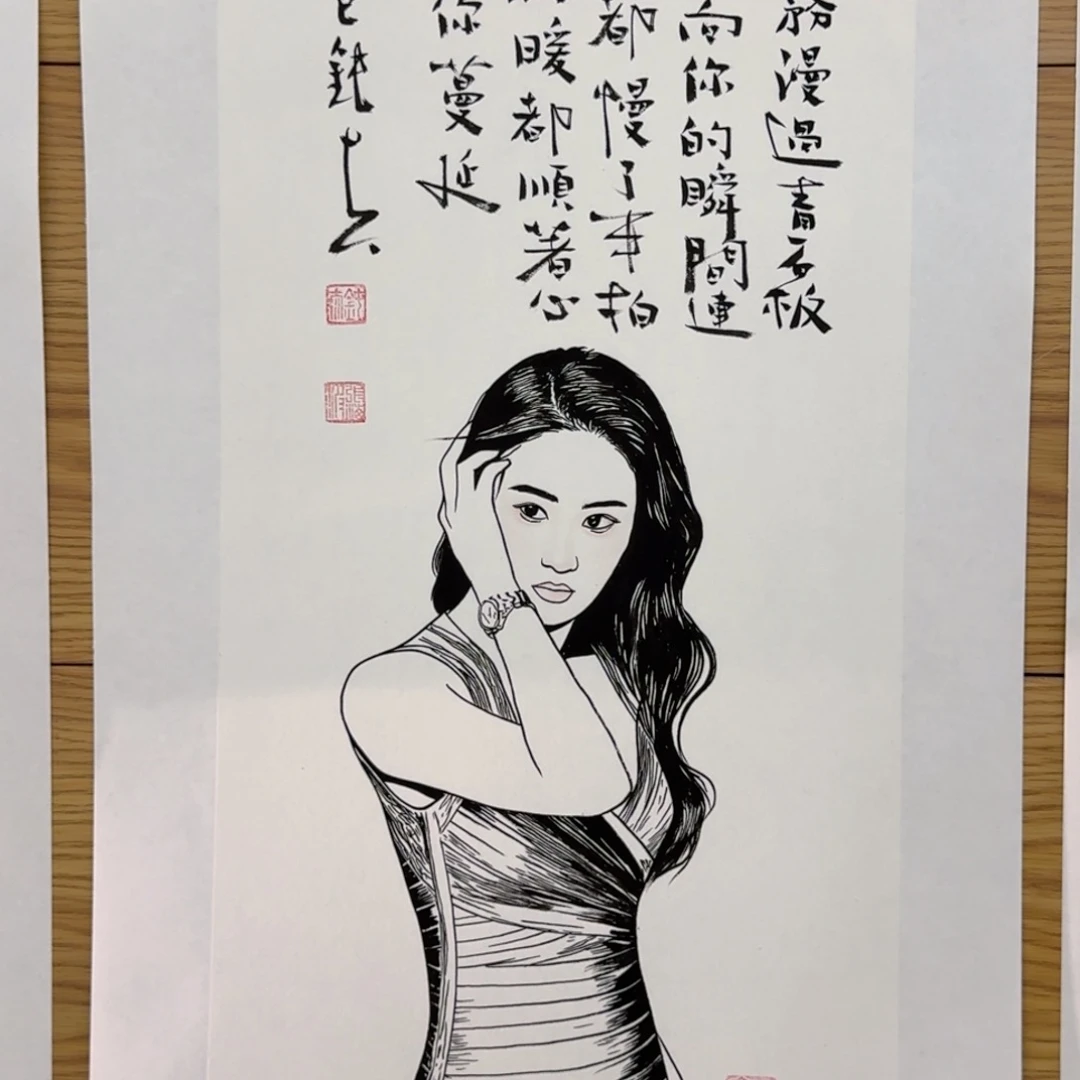 霧漫過青石板
向你的瞬間連
都慢了半拍
暖都順著心
你蔓延